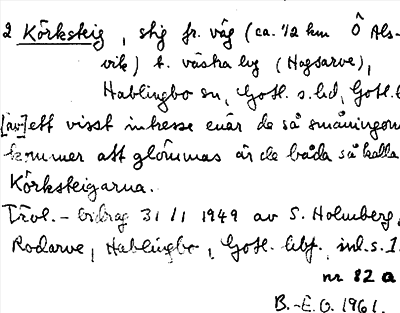 2 Körksteig, stig fr. väg (ca. 1/2 km Ö Als-
vik) t. västra byg (Hagsarve),
Hablingbo sn, Gotl. s. hd, Gotl. l
[av] ett visst intresse enär de så småningom
kommer att glömmas är de båda så kalla
Körksteigarna.
Trol. - bidrag 31/1 1949 av S. Holmberg,
Rodarve, Hablingbo, Gotl. inl. s. 1.
nr 82 a
B.-E.O. 1961.